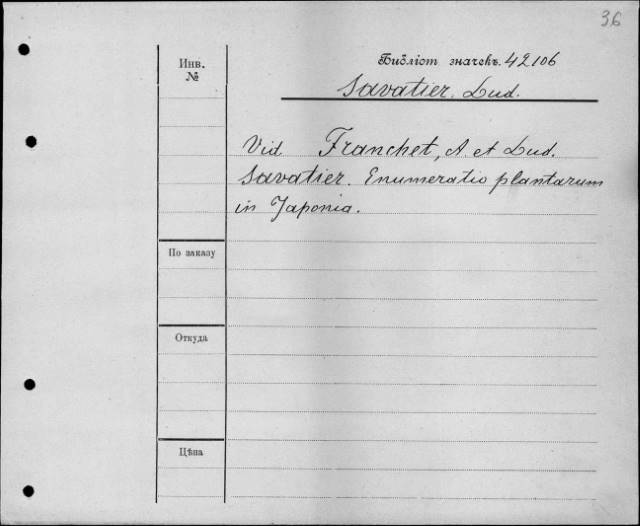 36
Библіот значекъ. 42106
Savatier. Lud.
Инв.
№
Vid Franchet, A. et Lud.
Savatier. Enumeratio plantarum
in Japonia.
По заказу
Откуда
Цѣна